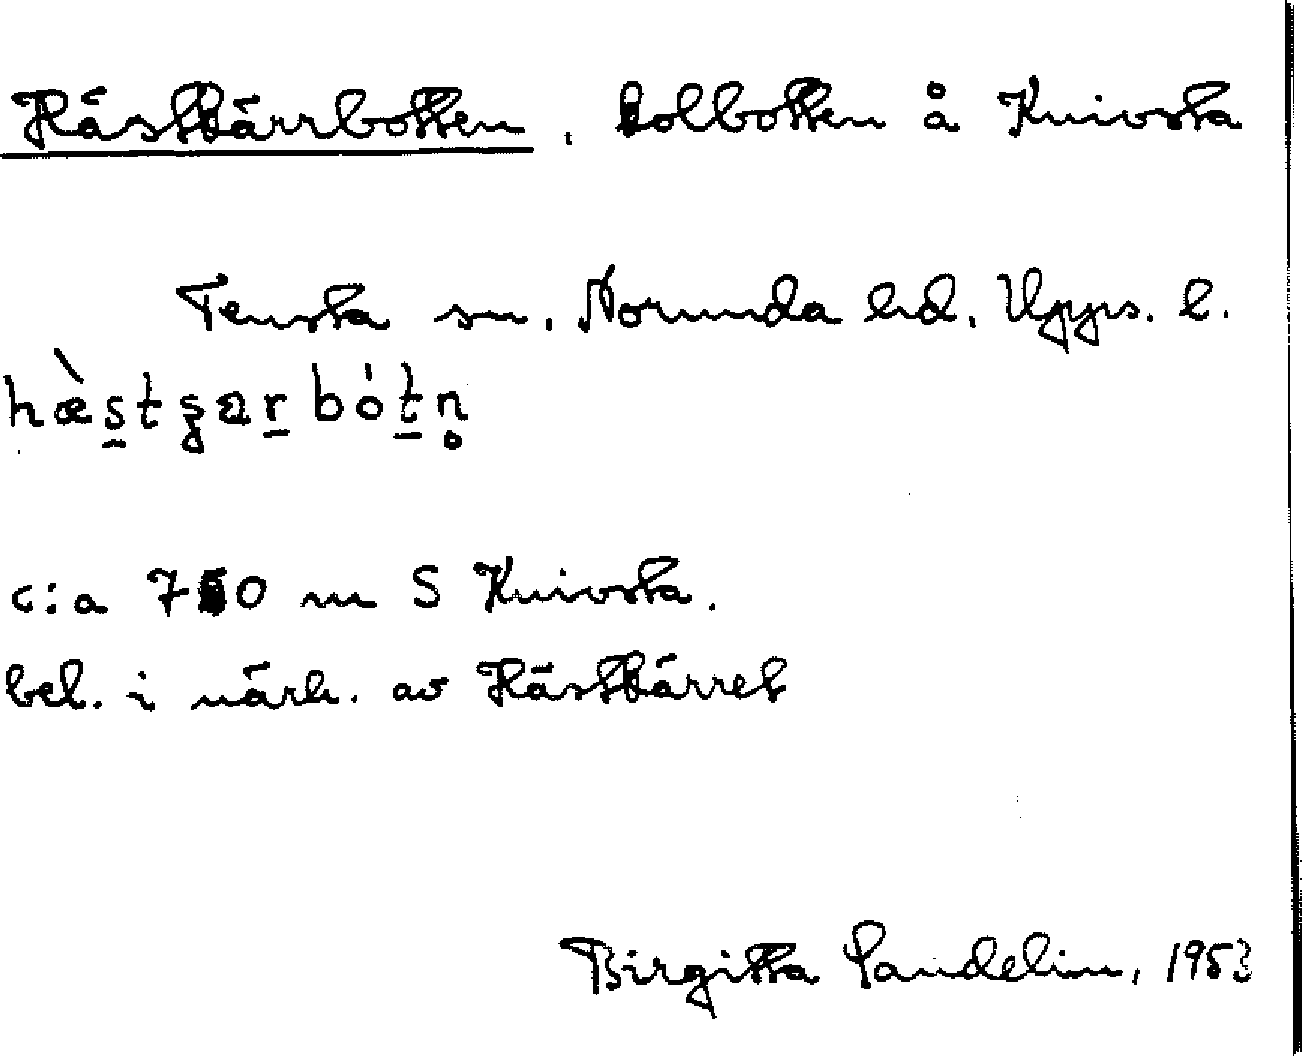 Hästkärrbotten, kolbotten å Knivsta
Tensta sn, Norunda hd, Upps. l.
hæ̀s̠tʂar̠bót̠n̥
c:a 750 m S Knivsta.
bel. i närh. av Hästkärret
Birgitta Sandelin, 1953